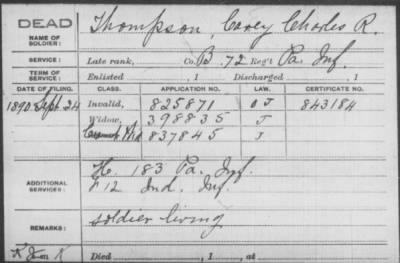 DEAD Thompson, Carey Charles R.
NAME OF SOLDIER:
SERVICE: Late rank, Co. B, 72 Reg't Pa. Inf.
TERM OF SERVICE: Enlisted , 1 Discharged , 1
DATE OF FILING. CLASS. APPLICATION NO. LAW. CERTIFICATE NO.
1890 Sept 24 Invalid, 825871 J 843184
Widow, 398835 J
837845 J
ADDITIONAL SERVICES: H. 183 Pa. Inf.
12 Ind. Inf.
REMARKS: soldier living
Died , 1 , at